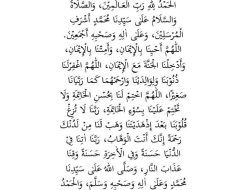 الْحَمْدُ لِلَّهِ رَبِّ الْعَالَمِيْنَ، وَالصَّلَاةُ
وَالسَّلَامُ عَلَى سَيِّدِنَا مُحَمَّدٍ أَشْرَفِ
الْمُرْسَلِيْنَ، وَعَلَى آلِهِ وَصَحْبِهِ أَجْمَعِيْنَ.
اللَّهُمَّ أَحْيِنَا بِالْإِيْمَانِ، وَأَمِتْنَا بِالْإِيْمَانِ،
وَأَدْخِلْنَا الْجَنَّةَ مَعَ الْإِيْمَانِ، اللَّهُمَّ اغْفِرْلَنَا
ذُنُوْبَنَا وَلِوَالِدَيْنَا وَارْحَمْهُمَا كَمَا رَبَّيَانَا
صَغِيْرًا، اللَّهُمَّ اخْتِمْ لَنَا بِحُسْنِ الْخَاتِمَةِ وَلَا
تَخْتِمْ عَلَيْنَا بِسُوْءِ الْخَاتِمَةِ، رَبَّنَا لَا تُزِغْ
قُلُوْبَنَا بَعْدَ إِذْ هَدَيْتَنَا وَهَبْ لَنَا مِنْ لَدُنْكَ
رَحْمَةً إِنَّكَ أَنْتَ الْوَهَّابُ، رَبَّنَا آتِنَا فِي
الدُّنْيَا حَسَنَةً وَفِي الْآخِرَةِ حَسَنَةً وَقِنَا
عَذَابَ النَّارِ، وَصَلَّى اللهُ عَلَى سَيِّدِنَا
مُحَمَّدٍ وَعَلَى آلِهِ وَصَحْبِهِ وَسَلَّمَ، وَالْحَمْدُ